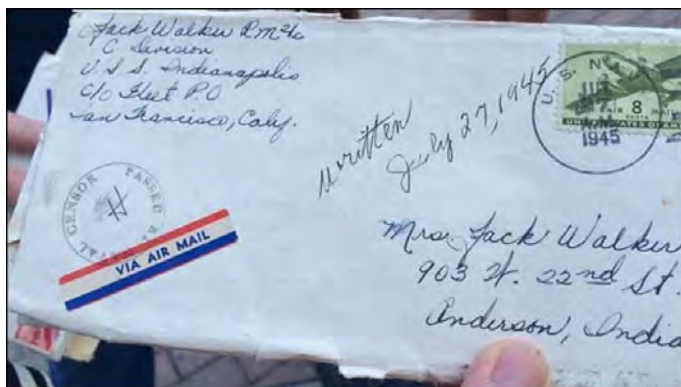 Jack Walker RM 2/c
C Division
U.S.S. Indianapolis
C/o Fleet P.O
San Francisco, Caly.
written
July 27, 1945
U. S. NAV
JUL
27
1945
AIR MAIL
8
UNITED STATES OF AMER
PASSED BY
NAVAL CENSOR
VIA AIR MAIL
Mrs. Jack Walker
903 W. 22nd St.
Anderson, India